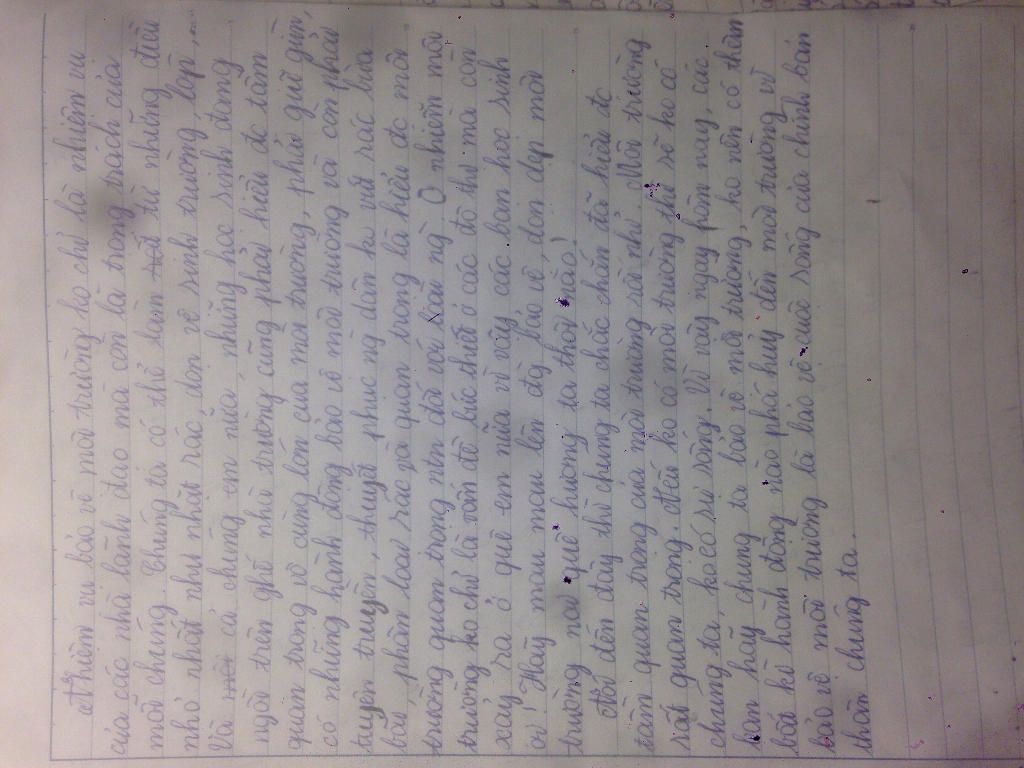 Nhiệm vụ bảo vệ môi trường ko chỉ là nhiệm vụ
của các nhà lãnh đạo mà còn là trọng trách của
mỗi chúng. Chúng ta có thể làm từ những điều
nhỏ nhất như nhặt rác, dọn vệ sinh trường, lớp,...
Và cả chúng em nữa những học sinh đang
ngồi trên ghế nhà trường cũng phải hiểu đc tầm
quan trọng vô cùng lớn của môi trường, phải giữ gìn,
có những hành động bảo vệ môi trường và còn phải
tuyên truyền, thuyết phục ng dân ko vứt rác bừa
bãi, phân loại rác và quan trọng là hiểu đc môi
trường quan trọng ntn đối với loài ng. Ô nhiễm môi
trường ko chỉ là vấn đề bức thiết ở các đô thị mà còn
xảy ra ở quê em nữa vì vậy các bạn học sinh
ơi! Hãy mau mau lên để bảo vệ, dọn dẹp môi
trường nơi quê hương ta thôi nào!
Nói đến đây thì chúng ta chắc chắn đã hiểu đc
tầm quan trọng của môi trường rồi nhỉ. Môi trường
rất quan trọng. Nếu ko có môi trường thì sẽ ko có
chúng ta, ko có sự sống. Vì vậy ngay hôm nay, các
bạn hãy chung tay bảo vệ môi trường, ko nên có thêm
bất kì hành động nào phá hủy đến môi trường vì
bảo vệ môi trường là bảo vệ cuộc sống của chính bản
thân chúng ta.